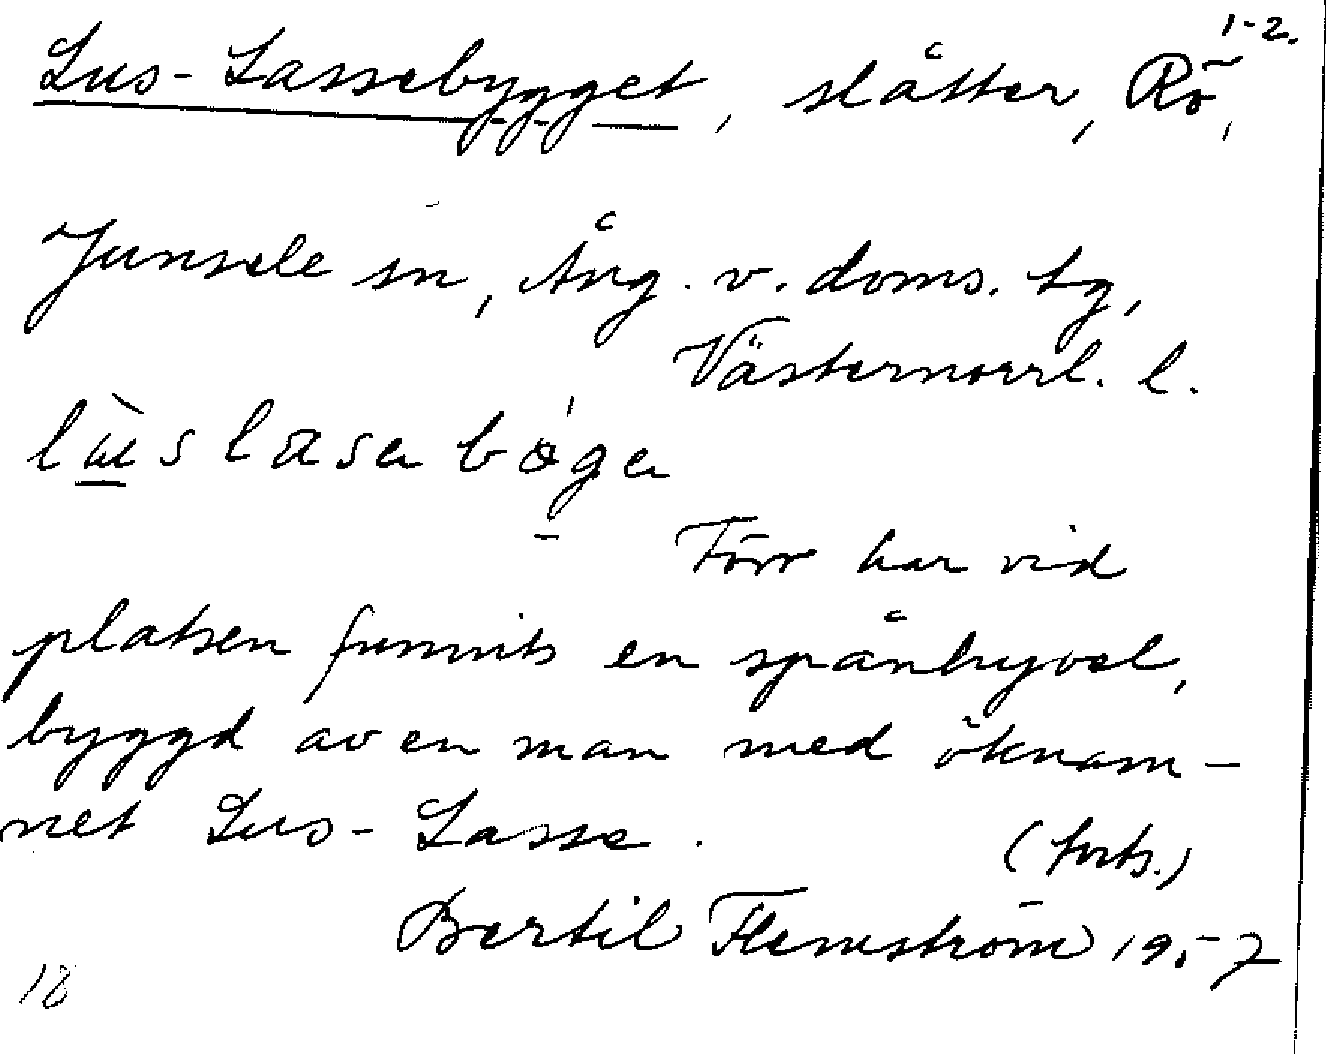 1-2.
Lus-Lassebygget, slåtter, Rö,
Junsele sn, Ång. v. doms. tg,
Västernorrl. l.
lùslasa bøga
Förr har vid
platsen funnits en spånhyvel,
byggd av en man med öknam-
net Lus-Lasse.
(forts.)
Bertil Flemström 1957
18